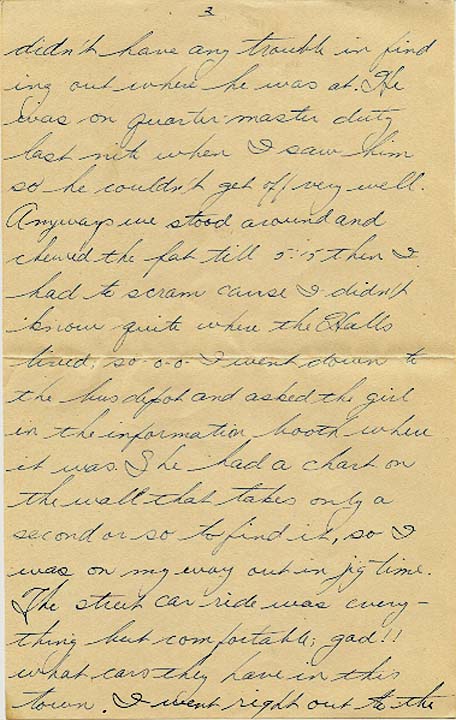 3
didn't have any trouble in find
ing out where he was at. He
was on quarter-master duty
last nite when I saw him
so he couldn't get off very well.
Anyways we stood around and
chewed the fat till 5:15 then I
had to scram cause I didn't
know quite where the Halls
lived; so-o-o- I went down to
the bus depot and asked the girl
in the information booth where
it was. She had a chart on
the wall that takes only a
second or so to find it, so I
was on my way out in jig time.
The street car ride was every-
thing but comfortable; gad!!
what cars they have in this
town. I went right out to the